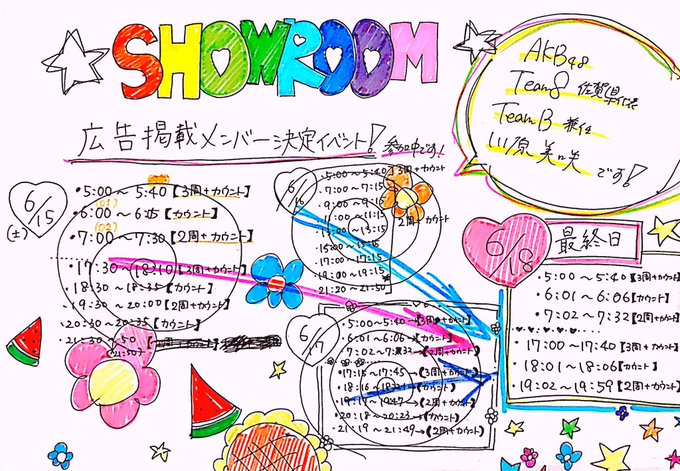 SHOWROOM
AKB48
Team8 佐賀県代表
TeamB 兼任
川原美咲です!
広告掲載メンバー決定イベント! 参加中です!
6/15
(土)
・5:00〜5:40【3周+カウント】
(01)
・6:00〜6:05【カウント】
(02)
・7:00〜7:30【2周+カウント】
・17:30〜18:10【3周+カウント】
・18:30〜18:35【カウント】
・19:30〜20:00【2周+カウント】
・20:30〜20:35【カウント】
・21:30〜
(21:50)
6/16
・5:00〜5:40【3周+カウント】
・7:00〜7:15
・9:00〜9:15
・11:00〜11:15
・13:00〜13:15
・15:00〜15:15
・17:00〜17:15
・19:00〜19:15
・21:20〜21:50
2周+カウント
6/17
・5:00〜5:40→【3周+カウント】
・6:01〜6:06→【カウント】
・7:02〜7:32→【2周+カウント】
・17:15〜17:45→【3周+カウント】
・18:16〜→【カウント】
・19:17〜19:47→【2周+カウント】
・20:18〜20:23→【カウント】
・21:19〜21:49→【2周+カウント】
6/18
最終日
・5:00〜5:40【3周+カウント】
・6:01〜6:06【カウント】
・7:02〜7:32【2周+カウント】
・17:00〜17:40【3周+カウント】
・18:01〜18:06【カウント】
・19:02〜19:59【2周+カウント】